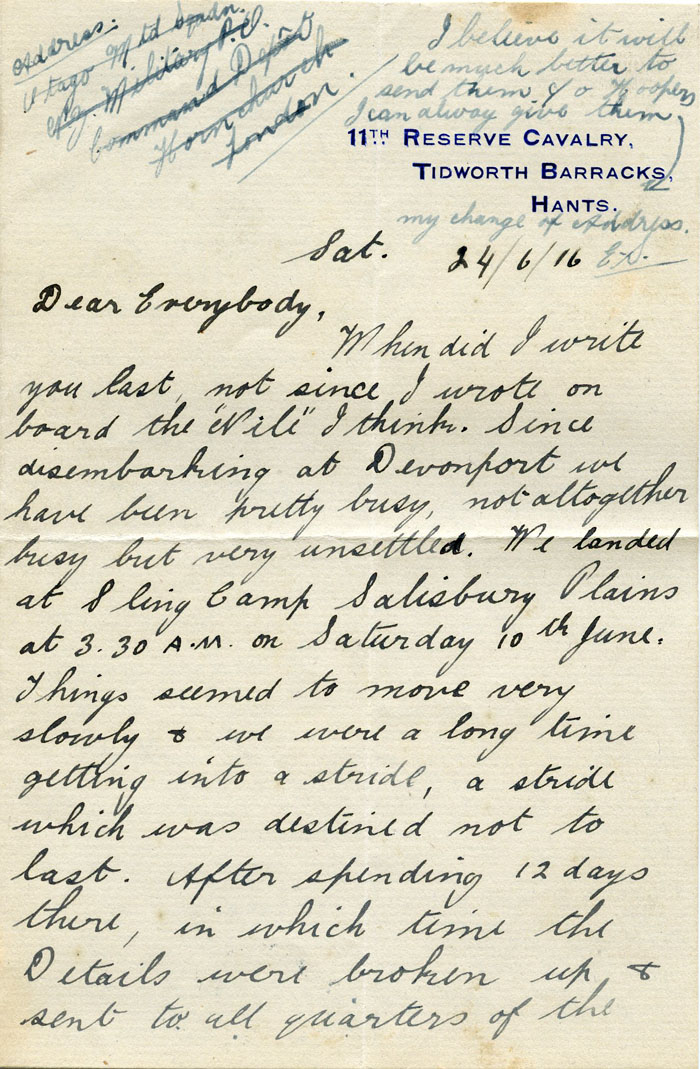 Address:
Otago Mtd Sqdn.
N.Z. Military P.O.
Command Depôt
Hornchurch
London.
I believe it will
be much better to
send them c/o Hoopers
I can alway give them
11TH RESERVE CAVALRY,
TIDWORTH BARRACKS,
HANTS.
my change of Address.
Sat. 24/6/16 E.D.
Dear Everybody,
When did I write
you last, not since I wrote on
board the "Nile" I think. Since
disembarking at Devonport we
have been pretty busy, not altogether
busy but very unsettled. We landed
at Sling Camp Salisbury Plains
at 3.30 A.M. on Saturday 10th June.
Things seemed to move very
slowly & we were a long time
getting into a stride, a stride
which was destined not to
last. After spending 12 days
there, in which time the
Details were broken up &
sent to all quarters of the